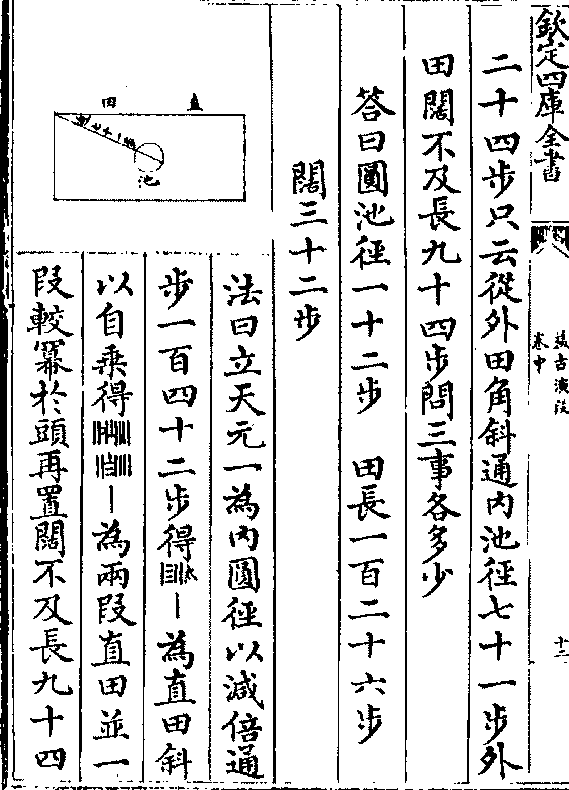 欽定四庫全書
益古演段
卷中
十二
二十四步只云從外田角斜通內池徑七十一步外
田闊不及長九十四步問三事各多少
答曰圓池徑一十二步　田長一百二十六步
闊三十二步
直田
池
法曰立天元一為內圓徑以減倍通
步一百四十二步得
為直田斜
以自乘得
為兩段直田並一
段較冪於頭再置闊不及長九十四